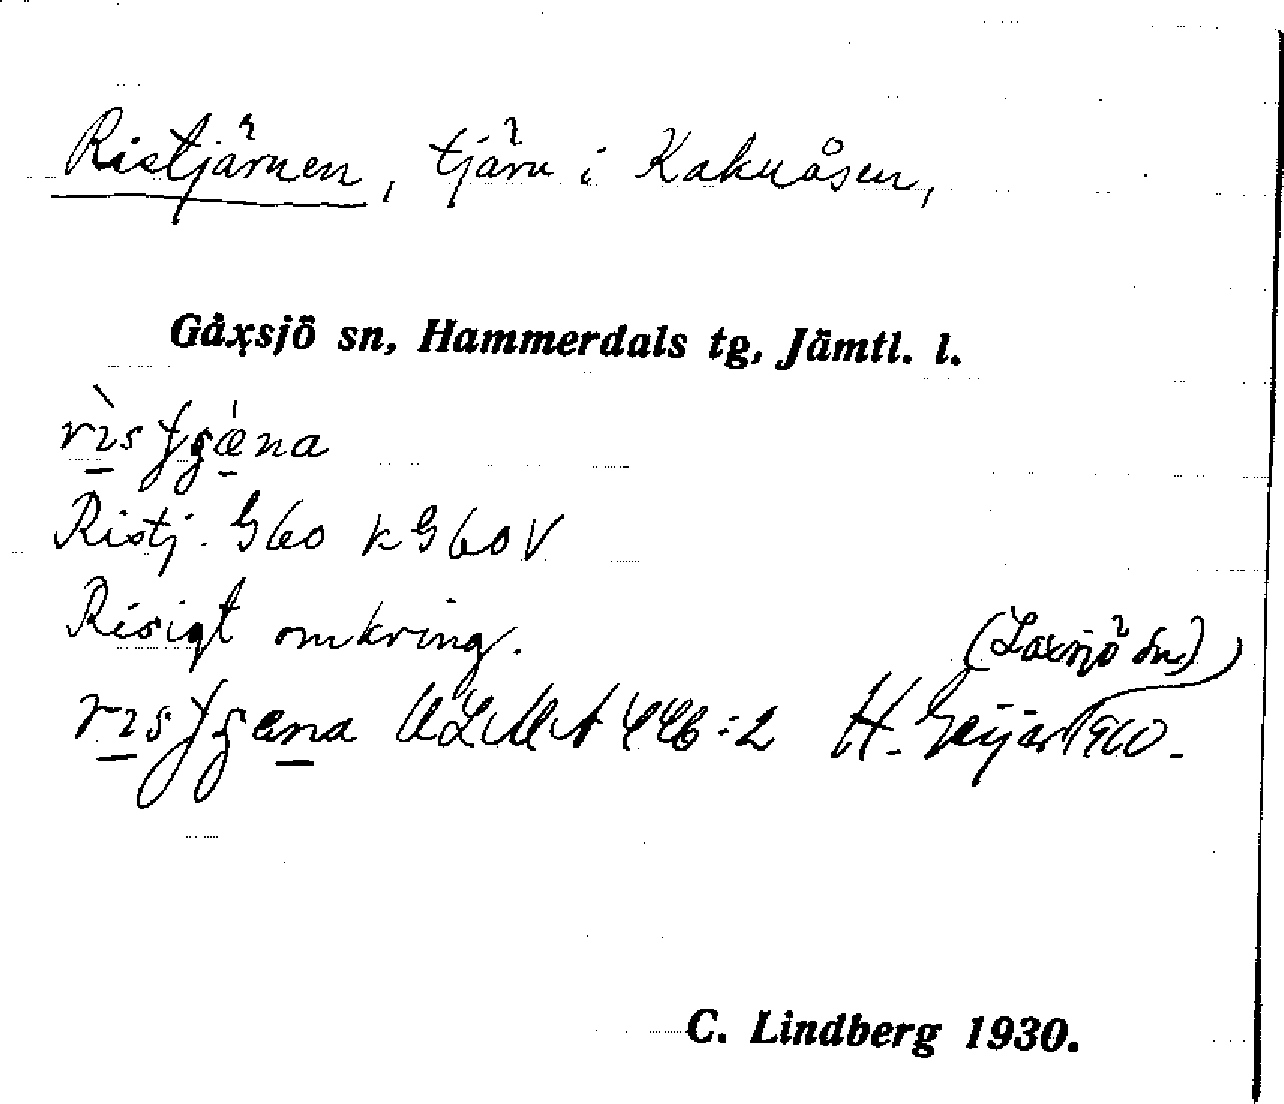 Ristjärnen, tjärn i Kakuåsen,
Gåxsjö sn, Hammerdals tg, Jämtl. l.
Ristj. G60 k G60V
Risigt omkring.
(Laxsjö sn)
ULMA 446:2 H. Geijer 1910.
C. Lindberg 1930.